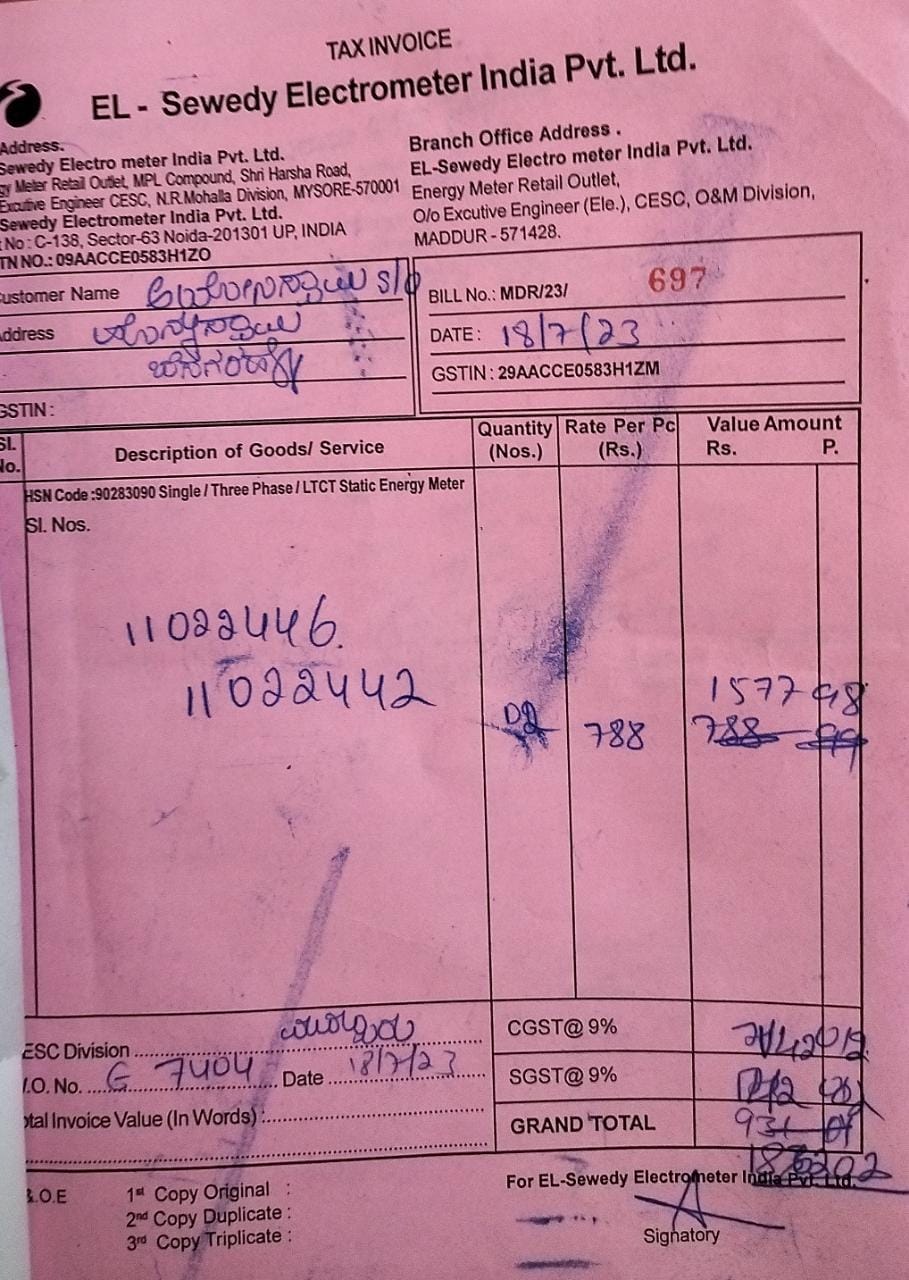 TAX INVOICE
EL - Sewedy Electrometer India Pvt. Ltd.
Address.
Sewedy Electro meter India Pvt. Ltd.
gy Meter Retail Outlet, MPL Compound, Shri Harsha Road,
Excutive Engineer CESC, N.R.Mohalla Division, MYSORE-570001
Sewedy Electrometer India Pvt. Ltd.
No : C-138, Sector-63 Noida-201301 UP, INDIA
TN NO.: 09AACCE0583H1ZO
Branch Office Address .
EL-Sewedy Electro meter India Pvt. Ltd.
Energy Meter Retail Outlet,
O/o Excutive Engineer (Ele.), CESC, O&M Division,
MADDUR - 571428.
ustomer Name S/o
ddress
GSTIN :
BILL No.: MDR/23/ 697
DATE : 18/7/23
GSTIN : 29AACCE0583H1ZM
SI. No. Description of Goods/ Service Quantity (Nos.) Rate Per Pc (Rs.) Value Amount Rs. P.
HSN Code :90283090 Single / Three Phase / LTCT Static Energy Meter
SI. Nos.
11022446.
11022442
1577 98
02 788 788 99
ESC Division
.O. No. G 7404 Date 18/7/23
tal Invoice Value (In Words) :
CGST@ 9%
SGST@ 9%
GRAND TOTAL 931 01
.O.E
1st Copy Original :
2nd Copy Duplicate :
3rd Copy Triplicate :
For EL-Sewedy Electrometer India Pvt. Ltd.
Signatory